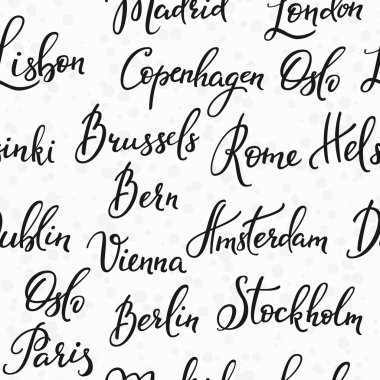 Madrid London
Lisbon
Copenhagen Oslo L
sinki Brussels Rome Hels
Bern
Dublin Vienna Amsterdam D
Oslo Berlin Stockholm
Paris